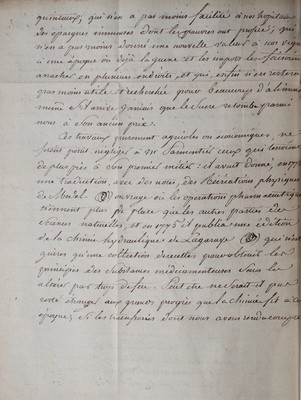 quineaux; qui n'en a pas moins facilité à nos hopitaux
des epargnes immenses dont les pauvres ont profité; qui
n'en a pas moins donné une nouvelle valeur à nos vignes
à une époque où déjà la guerre et les impots les faisaient
arracher en plusieurs endroits, et qui, enfin n'en restera
pas moins utile et recherchée pour beaucoup d'alimens
même s'il arrive jamais que le sucre retombe parmi
nous à son ancien prix.
Ces travaux purement agricoles ou économiques, ne
firent point négliger à M. Parmentier ceux qui tenaient
de plus près à son premier métier: et avait donné, en 177
une traduction, avec des notes, des Récréations physiques
de Model ouvrage où les opérations pharmaceutiques
tiennent plus de place que les autres parties des
sciences naturelles, et en 1775 il publia une édition
de la chimie hydraulique de Lagaraye qui n'est
guères qu'une collection de recettes pour obtenir les
principes des substances médicamenteuses sans les
altérer par trop de feu. Peut être ne serait il pas
resté étranger aux grands progrès que la chimie fit à cette
époque, si les
dont nous avons rendu compte